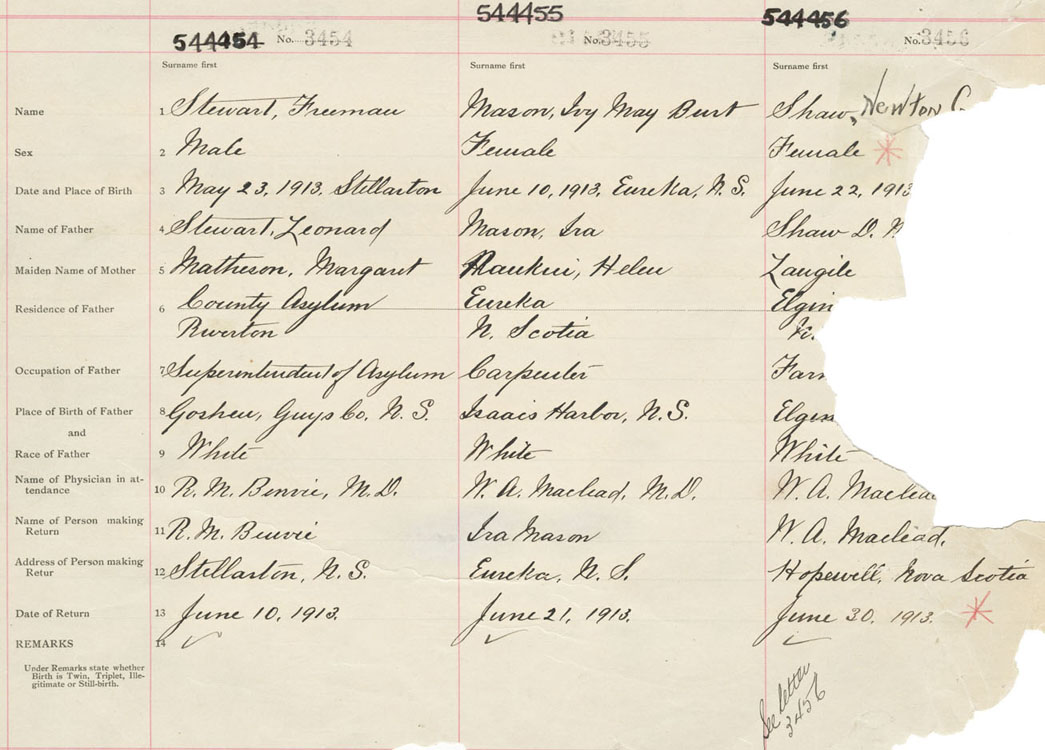 544454 No. 3454
544455 No. 3455
544456 No. 3456
Surname first Surname first Surname first
Name 1 Stewart, Freeman Mason, Ivy May Burt Shaw, Newton
Sex 2 Male Female Female *
Date and Place of Birth 3 May 23, 1913. Stellarton June 10, 1913, Eureka, N. S. June 22, 1913
Name of Father 4 Stewart, Leonard Mason, Ira Shaw D.
Maiden Name of Mother 5 Matheson, Margaret Helen
Residence of Father 6 County Asylum Eureka Elgin
Riverton N. Scotia
Occupation of Father 7 Superintendent of Asylum Carpenter Farm
Place of Birth of Father 8 Goshen, Guys Co, N. S. Isaacs Harbor, N. S. Elgin
and
Race of Father 9 White White White
Name of Physician in at-
tendance 10 R. M. Benvie, M. D. W. A. Macleod, M. D. W. A. Macleod
Name of Person making
Return 11 R. M. Benvie Ira Mason W. A. Macleod,
Address of Person making
Retur 12 Stellarton, N. S. Eureka, N. S. Hopewell, Nova Scotia
Date of Return 13 June 10, 1913. June 21, 1913. June 30, 1913. *
REMARKS 14
Under Remarks state whether
Birth is Twin, Triplet, Ille-
gitimate or Still-birth.
See letter
3456